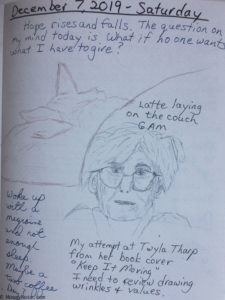 December 7, 2019 - Saturday
Hope rises and falls. The question on
my mind today is what if no one wants
what I have to give?
Latte laying
on the couch
6 AM
Woke up
with a
migraine
and not
enough
sleep.
Maybe a
coffee
My attempt at Twyla Tharp
from her book cover
"Keep It Moving"
I need to review drawing
wrinkles & values.